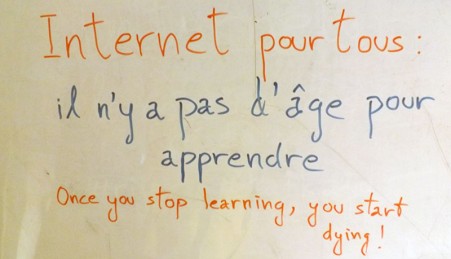 Internet pour tous :
il n'y a pas d'âge pour
apprendre
Once you stop learning, you start
dying!